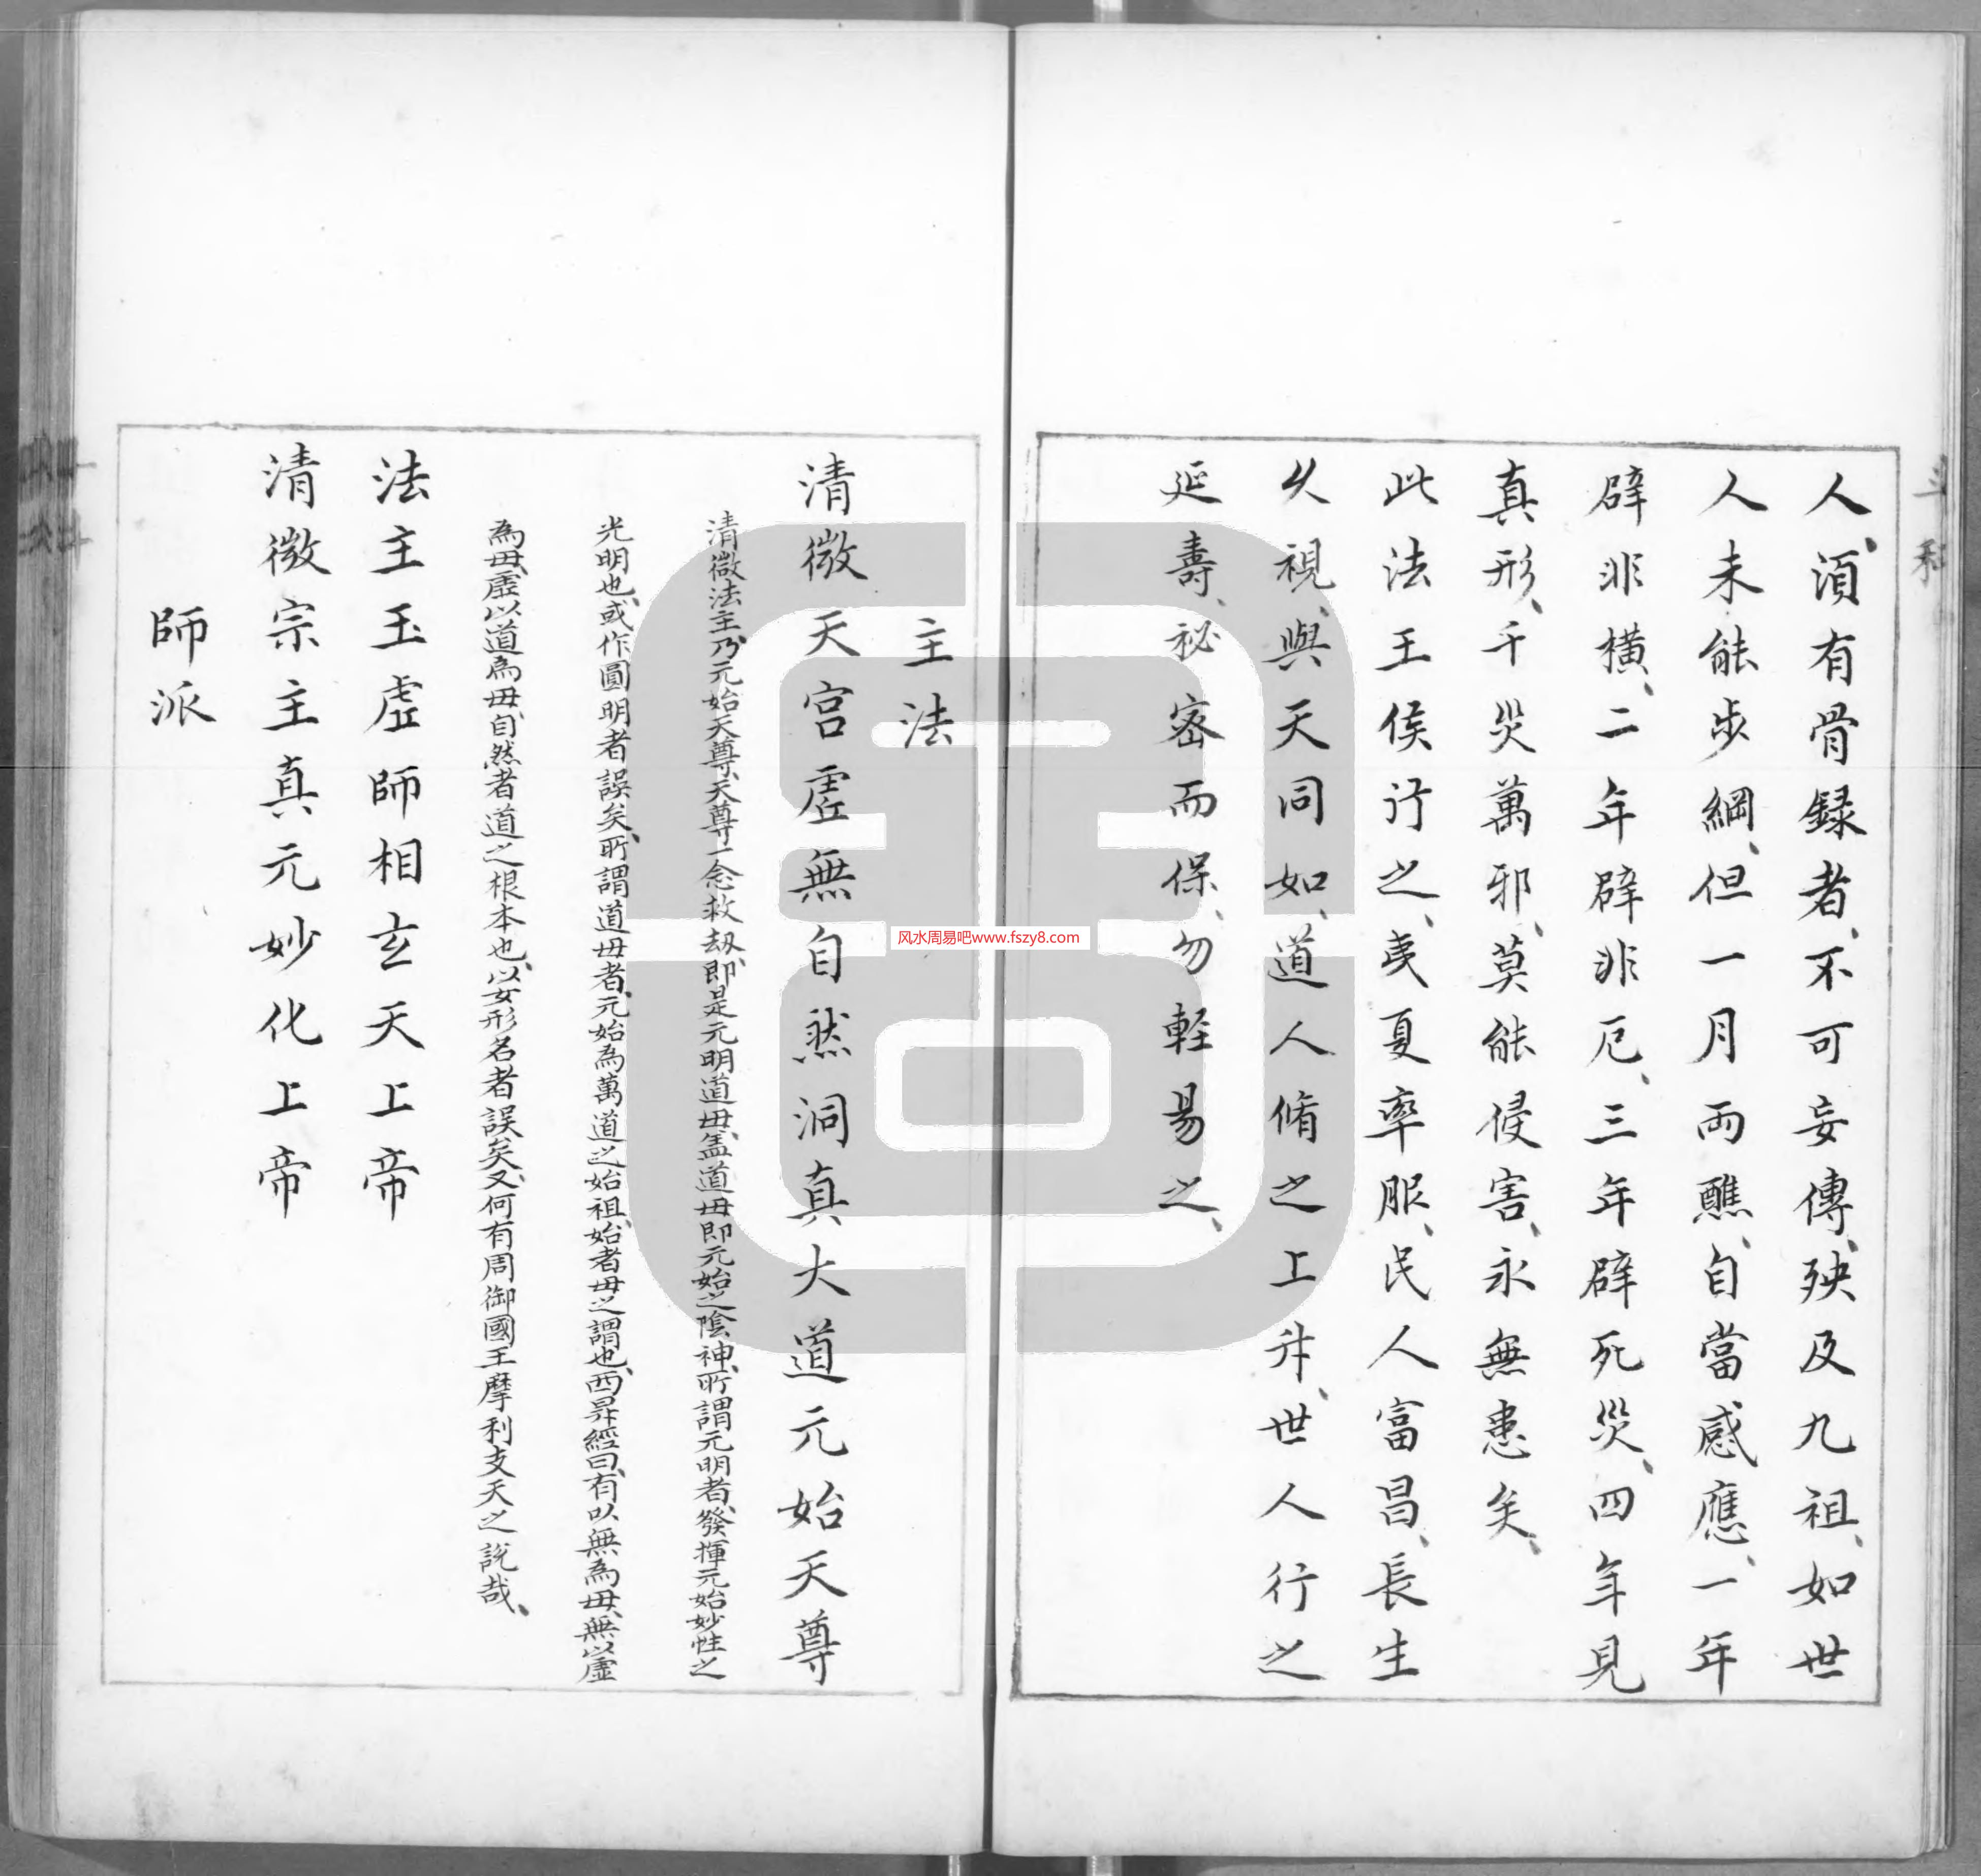 人、湏有骨録者、不可妄傳、殃及九祖、如世
人未能步綱、但一月兩醮、自當感應、一年
辟非橫、二年辟非厄、三年辟死災、四年見
真形、千災萬邪、莫能侵害、永無患矣、
此法王侯行之、夷夏率服、民人富昌、長生
久視、與天同如、道人脩之上升、世人行之
延壽、祕密而保、勿軽易之、
主法
清微天宮虛無自然洞真大道元始天尊
清微法主乃元始天尊、天尊一念救劫、即是元明道毋、盖道毋即元始之陰神、所謂元明者、發揮元始妙性之
光明也、或作圓明者誤矣、所謂道毋者、元始為萬道之始祖、始者毋之謂也、西昇經曰、有以無為毋、無以虛
為毋、虛以道為毋、自然者道之根本也、以女形名者誤矣、又何有周御國王摩利支天之說哉、
法主玉虛師相玄天上帝
清微宗主真元妙化上帝
師派
风水周易吧www.fszy8.com